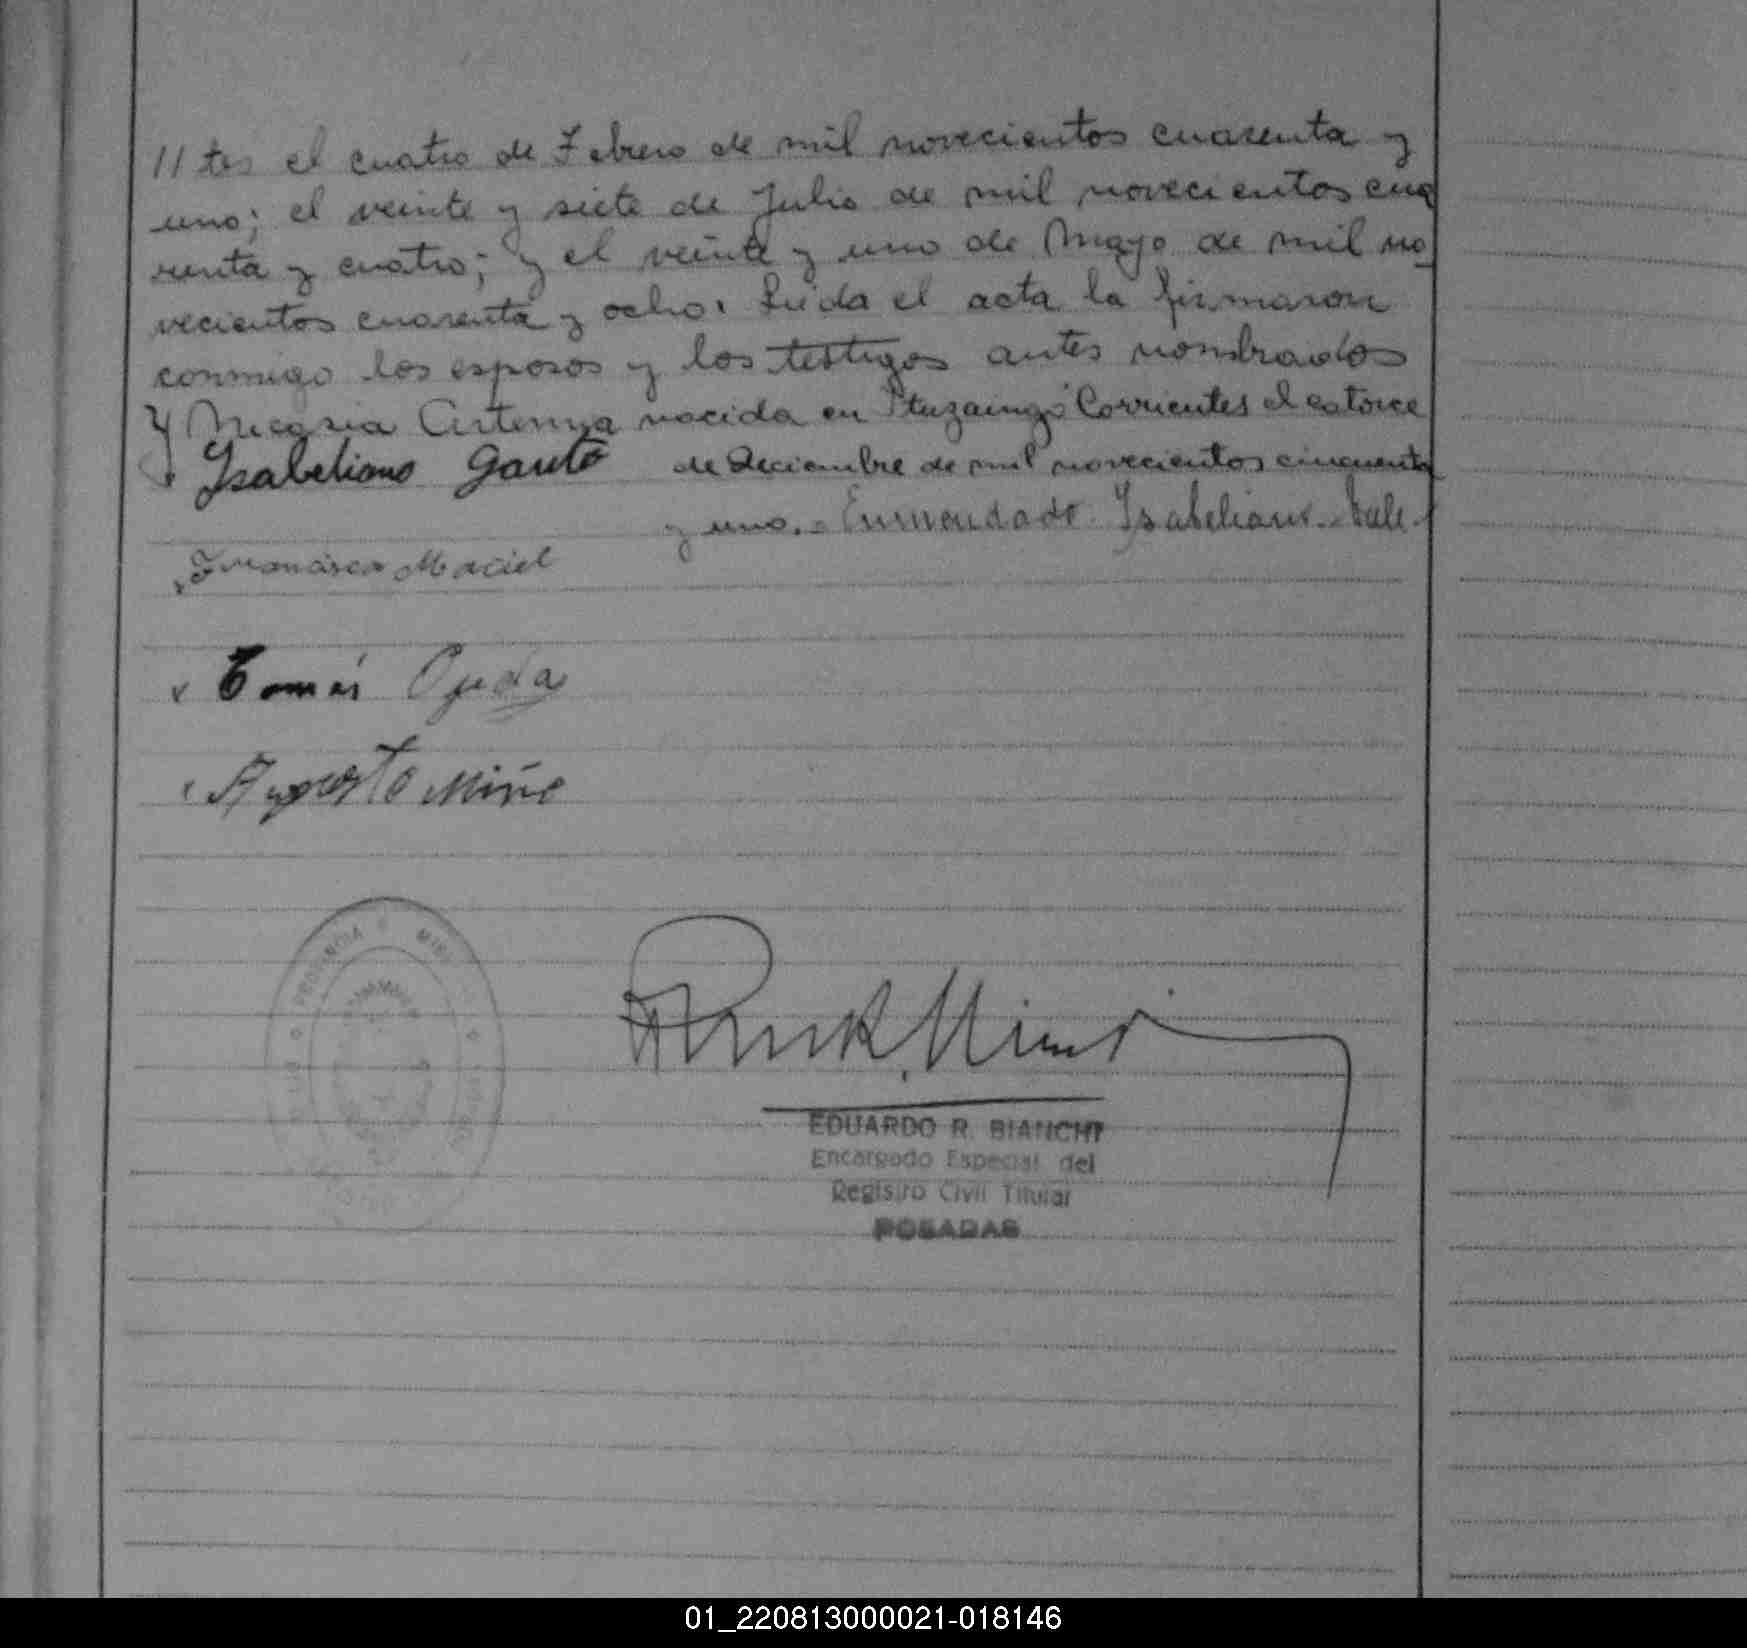 //tes el cuatro de Febrero de mil novecientos cuarenta y
uno; el veinte y siete de Julio de mil novecientos cua
renta y cuatro; y el veinte y uno de Mayo de mil no_
vecientos cuarenta y ocho. Leída el acta la firmaron
conmigo los esposos y los testigos antes nombrados
y Nicasia Artemia nacida en Ituzaingó Corrientes el catorce
Ysabeliano Gauto de Diciembre de mil novecientos cincuenta
y uno.- Enmendado Ysabeliano. Vale.
Francisca Maciel
Tomás Ojeda
Augusto Miño
PROVINCIA
EDUARDO R. BIANCHI
Encargado Especial del
Registro Civil Titular
POSADAS
01_220813000021-018146